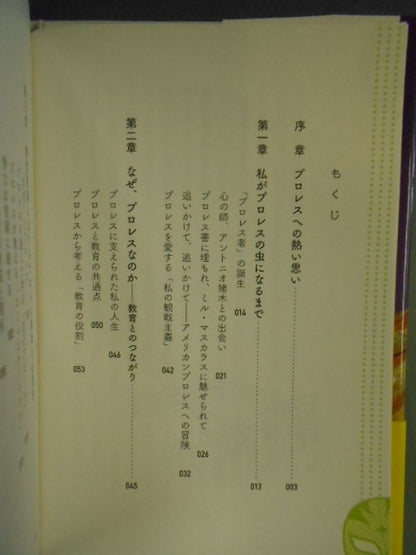 もくじ
序 章 プロレスへの熱い思い…………………… 003
第一章 私がプロレスの虫になるまで…………………… 013
「プロレス者」の誕生 014
心の師、アントニオ猪木との出会い 021
プロレス書に埋もれ、ミル・マスカラスに魅せられて 026
追いかけて、追いかけて――アメリカンプロレスへの冒険 032
プロレスを愛する「私の観戦主義」 042
第二章 なぜ、プロレスなのか――教育とのつながり…………………… 045
プロレスに支えられた私の人生 046
プロレスと教育の共通点 050
プロレスから考える「教育の役割」 053